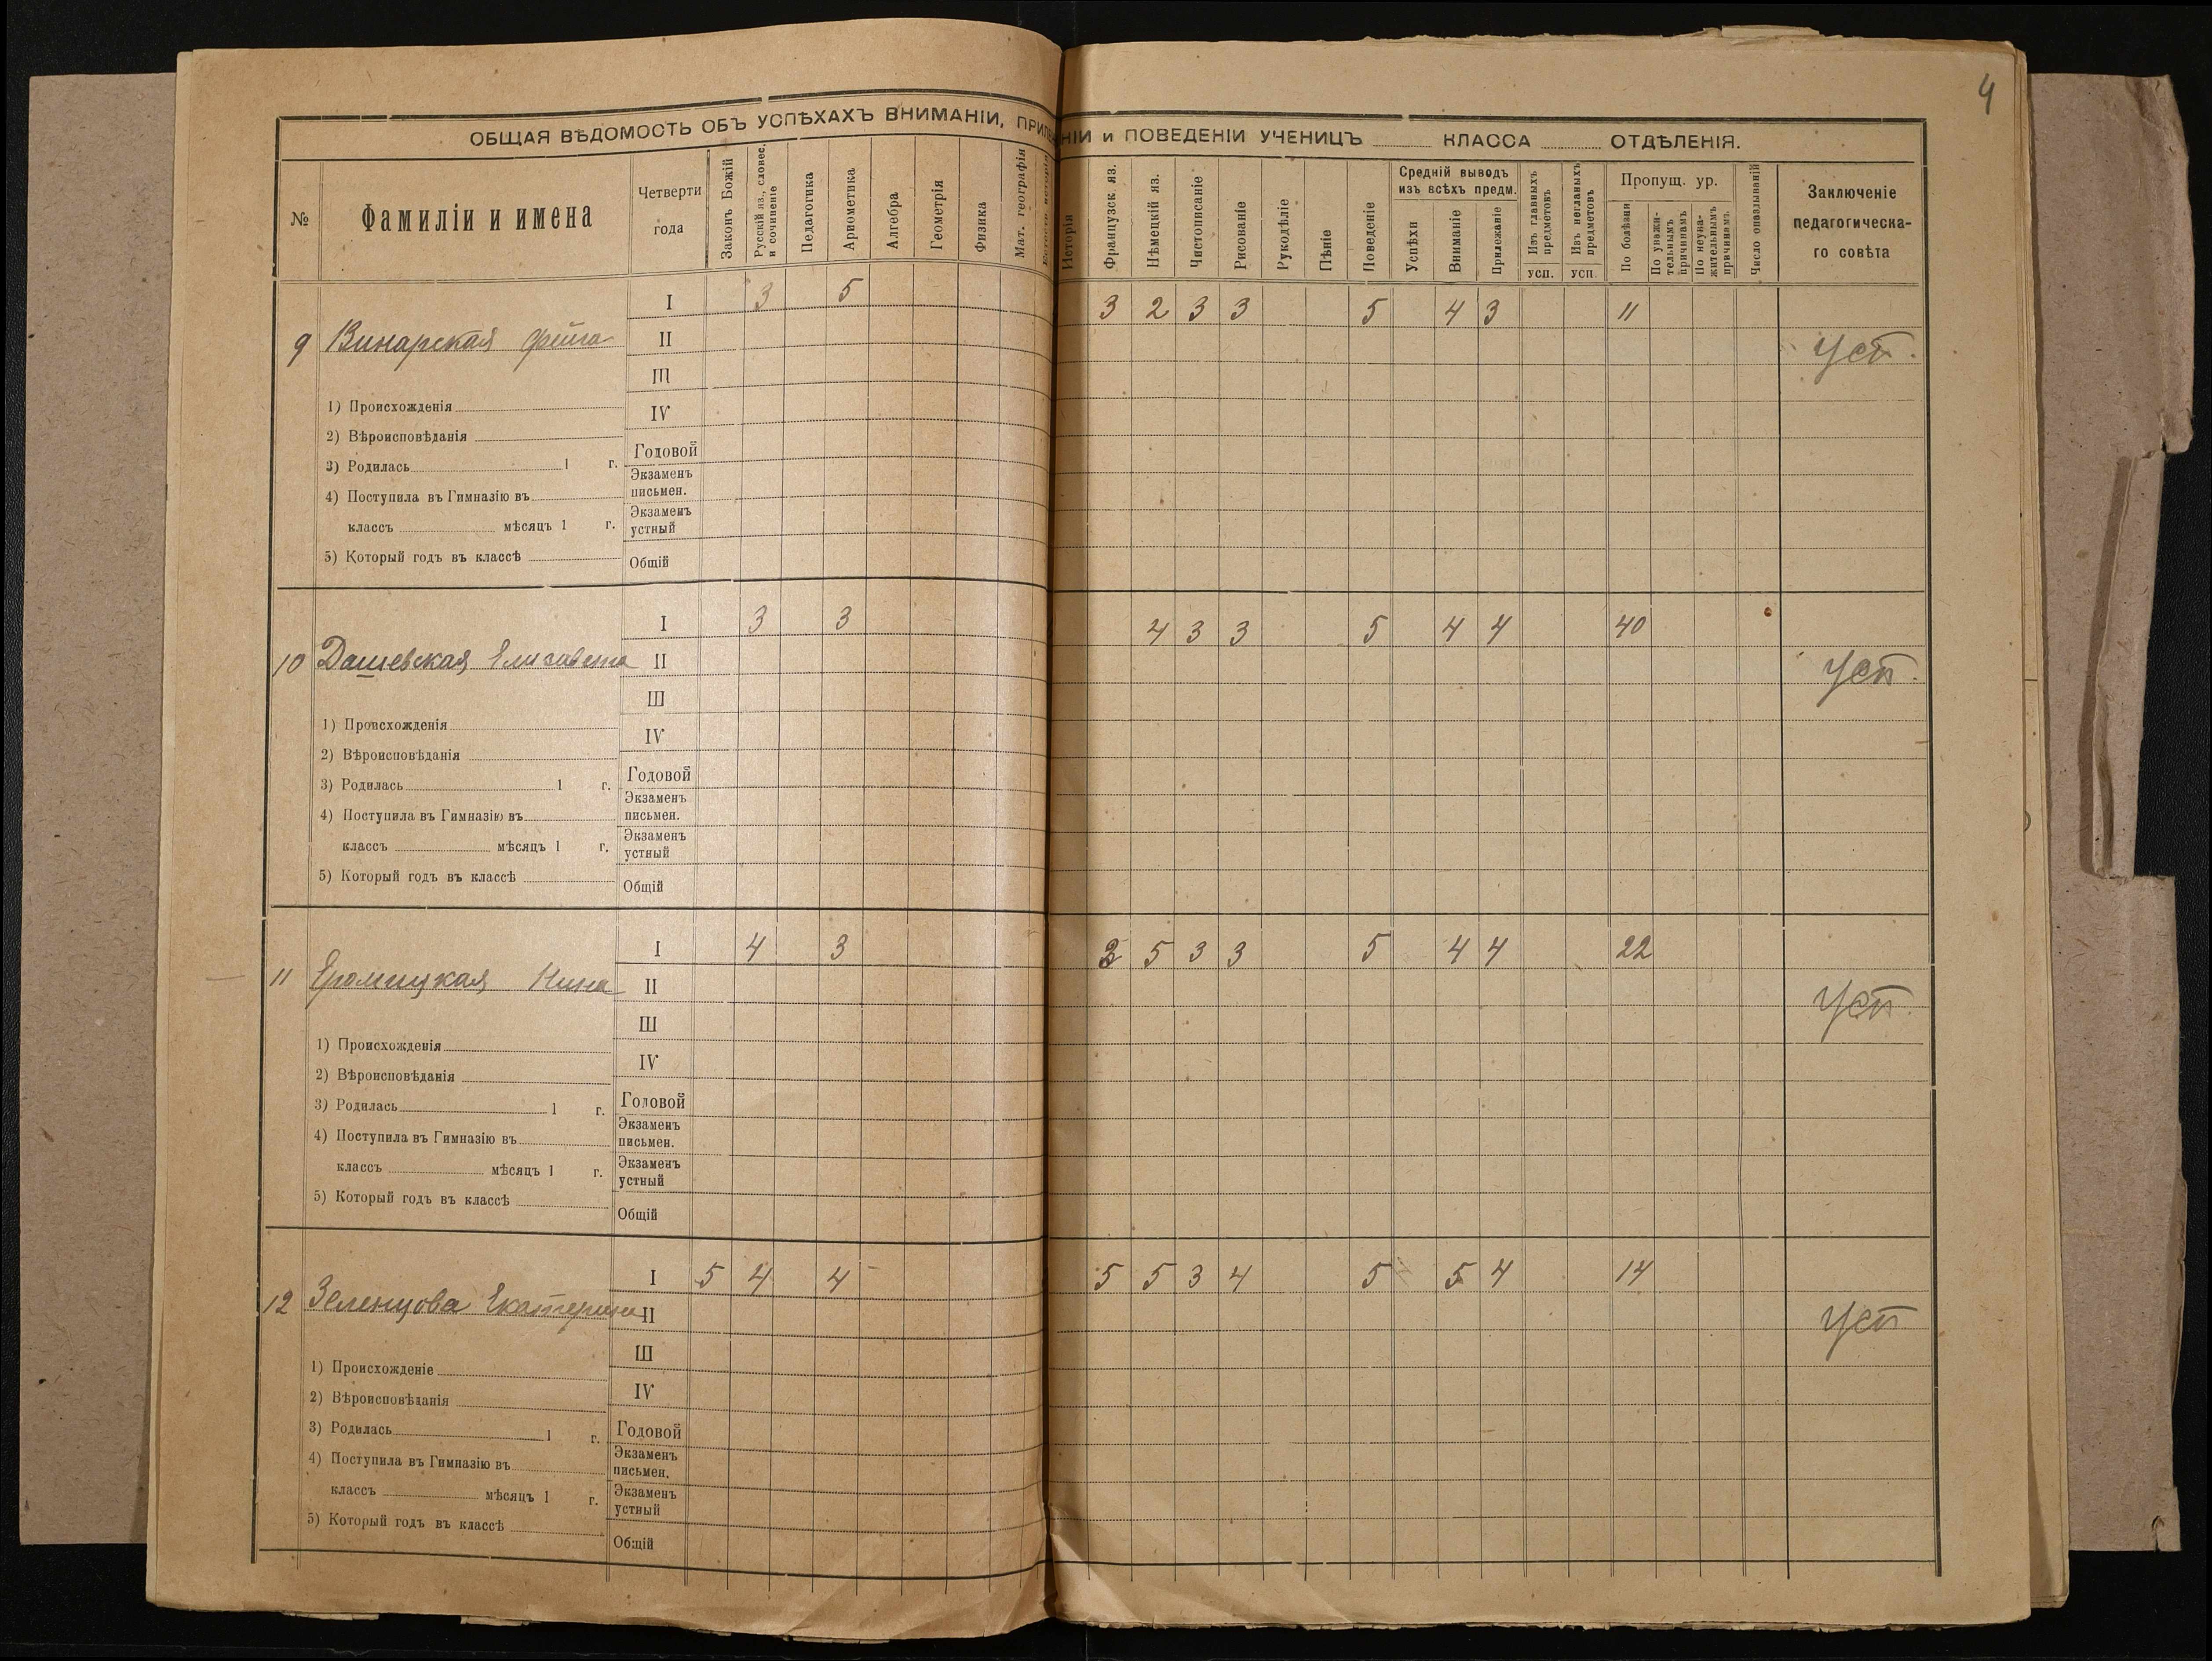 4
ОБЩАЯ ВѢДОМОСТЬ ОБЪ УСПѢХАХЪ ВНИМАНІИ, ПРИЛЕЖАНІИ и ПОВЕДЕНІИ УЧЕНИЦЪ КЛАССА ОТДѢЛЕНІЯ.
№
Фамиліи и имена
Четверти
года
Законъ Божій
Русскій яз., словес.
и сочиненіе
Педагогика
Ариѳметика
Алгебра
Геометрія
Физика
Мат. географія
Исторія
Французск яз.
Нѣмецкій яз.
Чистописаніе
Рисованіе
Рукодѣліе
Пѣніе
Поведеніе
Средній выводъ
изъ всѣхъ предм.
Успѣхи
Вниманіе
Прилежаніе
Изъ главныхъ
предметовъ
усп.
Изъ неглавныхъ
предметовъ
усп.
Пропущ. ур.
По болѣзни
По уважи-
тельнымъ
причинамъ
По неува-
жительнымъ
причинамъ.
Число опаздываній
Заключеніе
педагогическа-
го совѣта
I 3 5 3 2 3 3 5 4 3 11
9 Винарская Фейга II уст.
III
1) Происхожденія IV
2) Вѣроисповѣданія Годовой
3) Родилась 1 г. Экзаменъ
4) Поступила въ Гимназію въ письмен.
классъ мѣсяцъ 1 г. Экзаменъ
устный
5) Который годъ въ классѣ Общій
I 3 3 4 3 3 5 4 4 40
10 Дашевская Елизавета II усп.
III
1) Происхожденія IV
2) Вѣроисповѣданія Годовой
3) Родилась 1 г. Экзаменъ
4) Поступила въ Гимназію въ письмен.
классъ мѣсяцъ 1 г. Экзаменъ
устный
5) Который годъ въ классѣ Общій
I 4 3 5 3 3 5 4 4 22
11 Нина II усп.
III
1) Происхожденія IV
2) Вѣроисповѣданія Годовой
3) Родилась 1 г. Экзаменъ
4) Поступила въ Гимназію въ письмен.
классъ мѣсяцъ 1 г. Экзаменъ
устный
5) Который годъ въ классѣ Общій
I 5 4 4 5 5 3 4 5 5 4 14
12 Зеленцова Екатерина II усп
III
1) Происхожденіе IV
2) Вѣроисповѣданія Годовой
3) Родилась 1 г. Экзаменъ
4) Поступила въ Гимназію въ письмен.
классъ мѣсяцъ 1 г. Экзаменъ
устный
5) Который годъ въ классѣ Общій